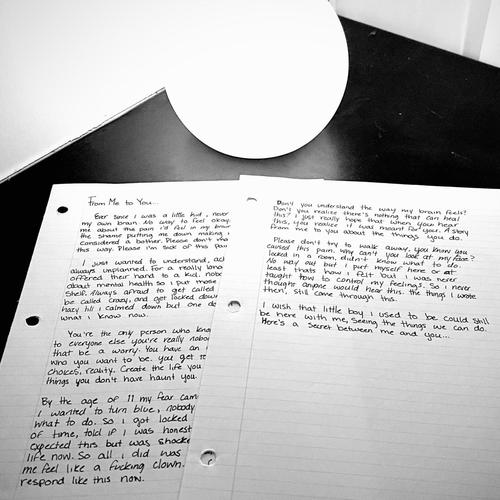 From Me to You...
Ever since I was a little kid, never
my own brain. No way to feel okay.
me about the pain i'd feel in my brain
the shame putting me down making i
considered a bother. Please don't
this way. Please I'm sick of this
I just wanted to understand,
always unplanned. For a really long
offered their hand to a kid,
about mental health so I put more
shelf. Always afraid to get called
be called crazy, and get locked down
hazy till i calmed down but one
what i know now.
You're the only person who
to everyone else you're really
that be a worry. You have an i
who you want to be. you get
choices, reality. Create the life you
things you don't have haunt you.
By the age of 11 my fear
I wanted to turn blue, nobody
what to do. So i got locked
of time, told if i was honest
expected this but was
life now. So all i did was
me feel like a fucking clown.
respond like this now.
Don't you understand the way my brain feels?
Don't you realize there's nothing that can heal
this? I just really hope that when you hear
this, you realize it was meant for your. A story
from me to you about the things you do.
Please don't try to walk away. You know you
caused this pain. Why can't you look at my face?
locked in a room, didn't know what to do.
No way out but I put myself here or at
least thats how i felt but i was never
taught how to control my feelings. So i never
thought anyone would hear this. the things I wrote
then, still come through this.
I wish that little boy i used to be could still
be here with me, seeing the things we can do.
Here's a secret between me and you...